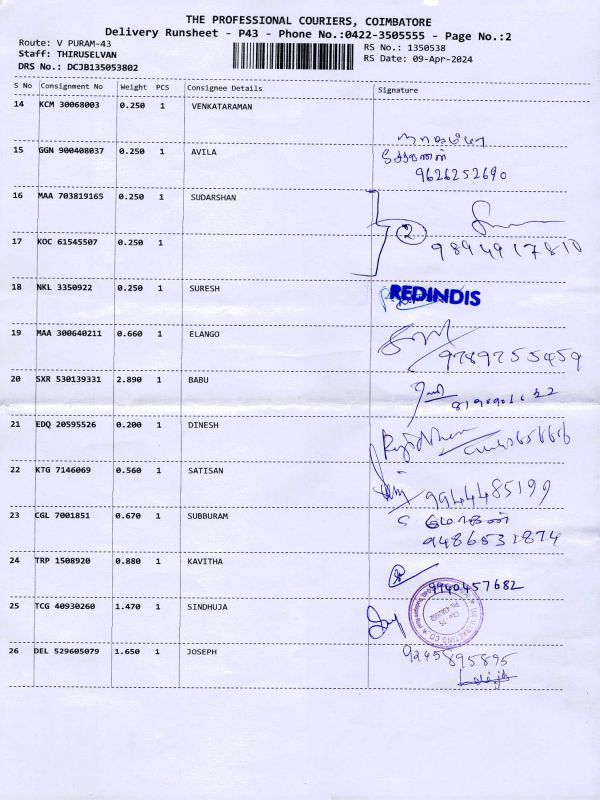 THE PROFESSIONAL COURIERS, COIMBATORE
Delivery Runsheet - P43 - Phone No.:0422-3505555 - Page No.:2
Route: V PURAM-43
RS No.: 1350538
Staff: THIRUSELVAN
RS Date: 09-Apr-2024
DRS No.: DCJB135053802
S No Consignment No Weight PCS Consignee Details Signature
14 KCM 30068003 0.250 1 VENKATARAMAN
15 GGN 900408037 0.250 1 AVILA
9626252690
16 MAA 703819165 0.250 1 SUDARSHAN
2
17 KOC 61545507 0.250 1 9894917810
18 NKL 3350922 0.250 1 SURESH REDINDIS
19 MAA 300640211 0.660 1 ELANGO
9789755459
20 SXR 530139331 2.890 1 BABU
21 EDQ 20595526 0.200 1 DINESH
22 KTG 7146069 0.560 1 SATISAN 9944485199
23 CGL 7001851 0.670 1 SUBBURAM S மோகன்
9486531874
24 TRP 1508920 0.880 1 KAVITHA
9940457682
25 TCG 40930260 1.470 1 SINDHUJA
26 DEL 529605079 1.650 1 JOSEPH 9245895895